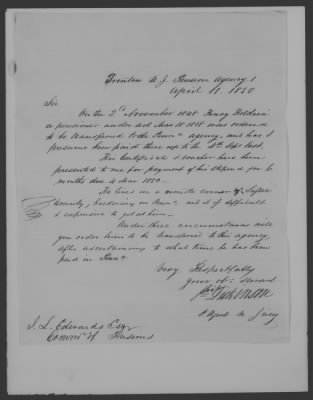 Trenton N. J. Pension Agency
April 11. 1850
Sir
On the 2d November 1848 Henry
a pensioner under act Mar 18 1818 was ordered
to be transferred to the Penna agency, and has I
presume been paid there up to the 4th Sept last.
His Certificate & voucher have been
presented to me for payment of his stipend for 6
months due 4 Mar 1850.
He lives in a remote corner of Sussex
County, bordering on Penna and it is difficult
& expensive to get at him.
Under these circumstances will
you order him to be transferred to this agency
after ascertaining to what time he has been
paid in Penna
Very Respectfully
Your ob. Servant
Dickinson
P. Agent N. Jersey
J. L. Edwards Esq
Commr of Pensions